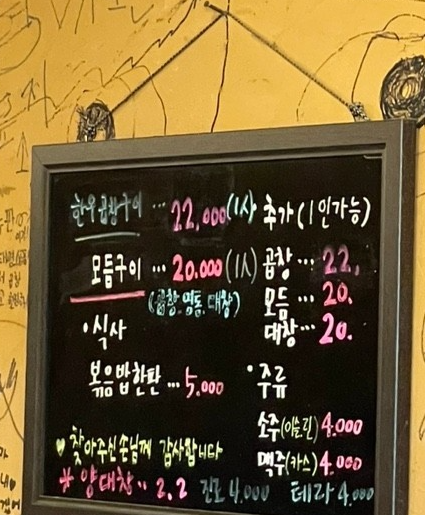 한우곱창구이 ... 22,000(1人)
모듬구이 ... 20.000(1人)
(곱창.염통.대창)
•식사
볶음밥한판 ... 5.000
추가(1인가능)
곱창... 22.
모듬... 20.
대창... 20.
•주류
소주(이슬린)4.000
맥주(카스)4.000
♥찾아주신손님께 감사합니다
# 양대창.. 2.2 진로 4,000 테라 4,000